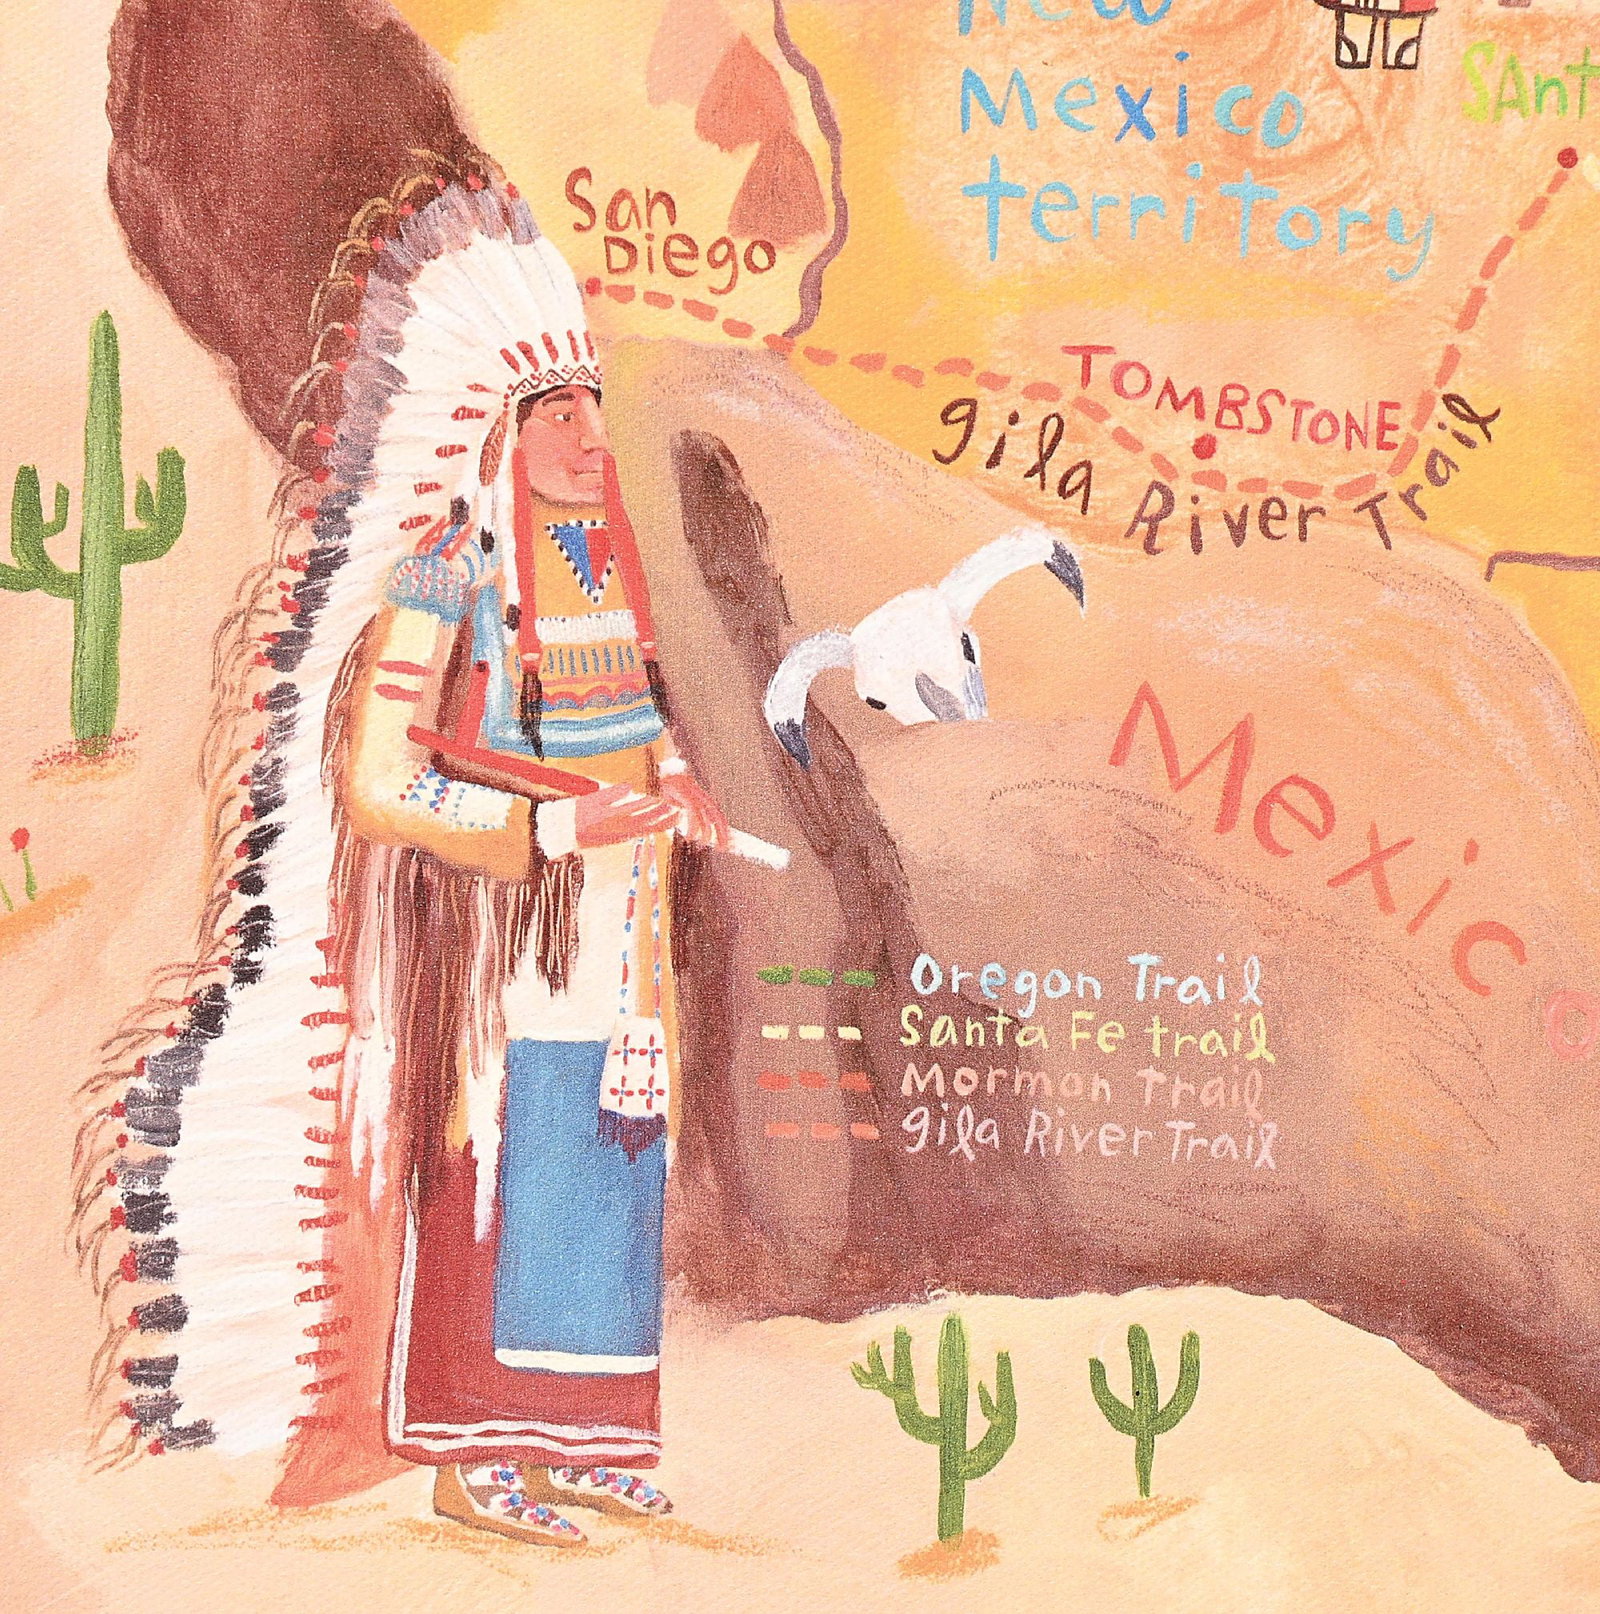 New
Mexico
territory
SAnt
San
Diego
TOMBSTONE
gila River Trail
Mexico
Oregon Trail
Santa Fe trail
Mormon Trail
gila River Trail